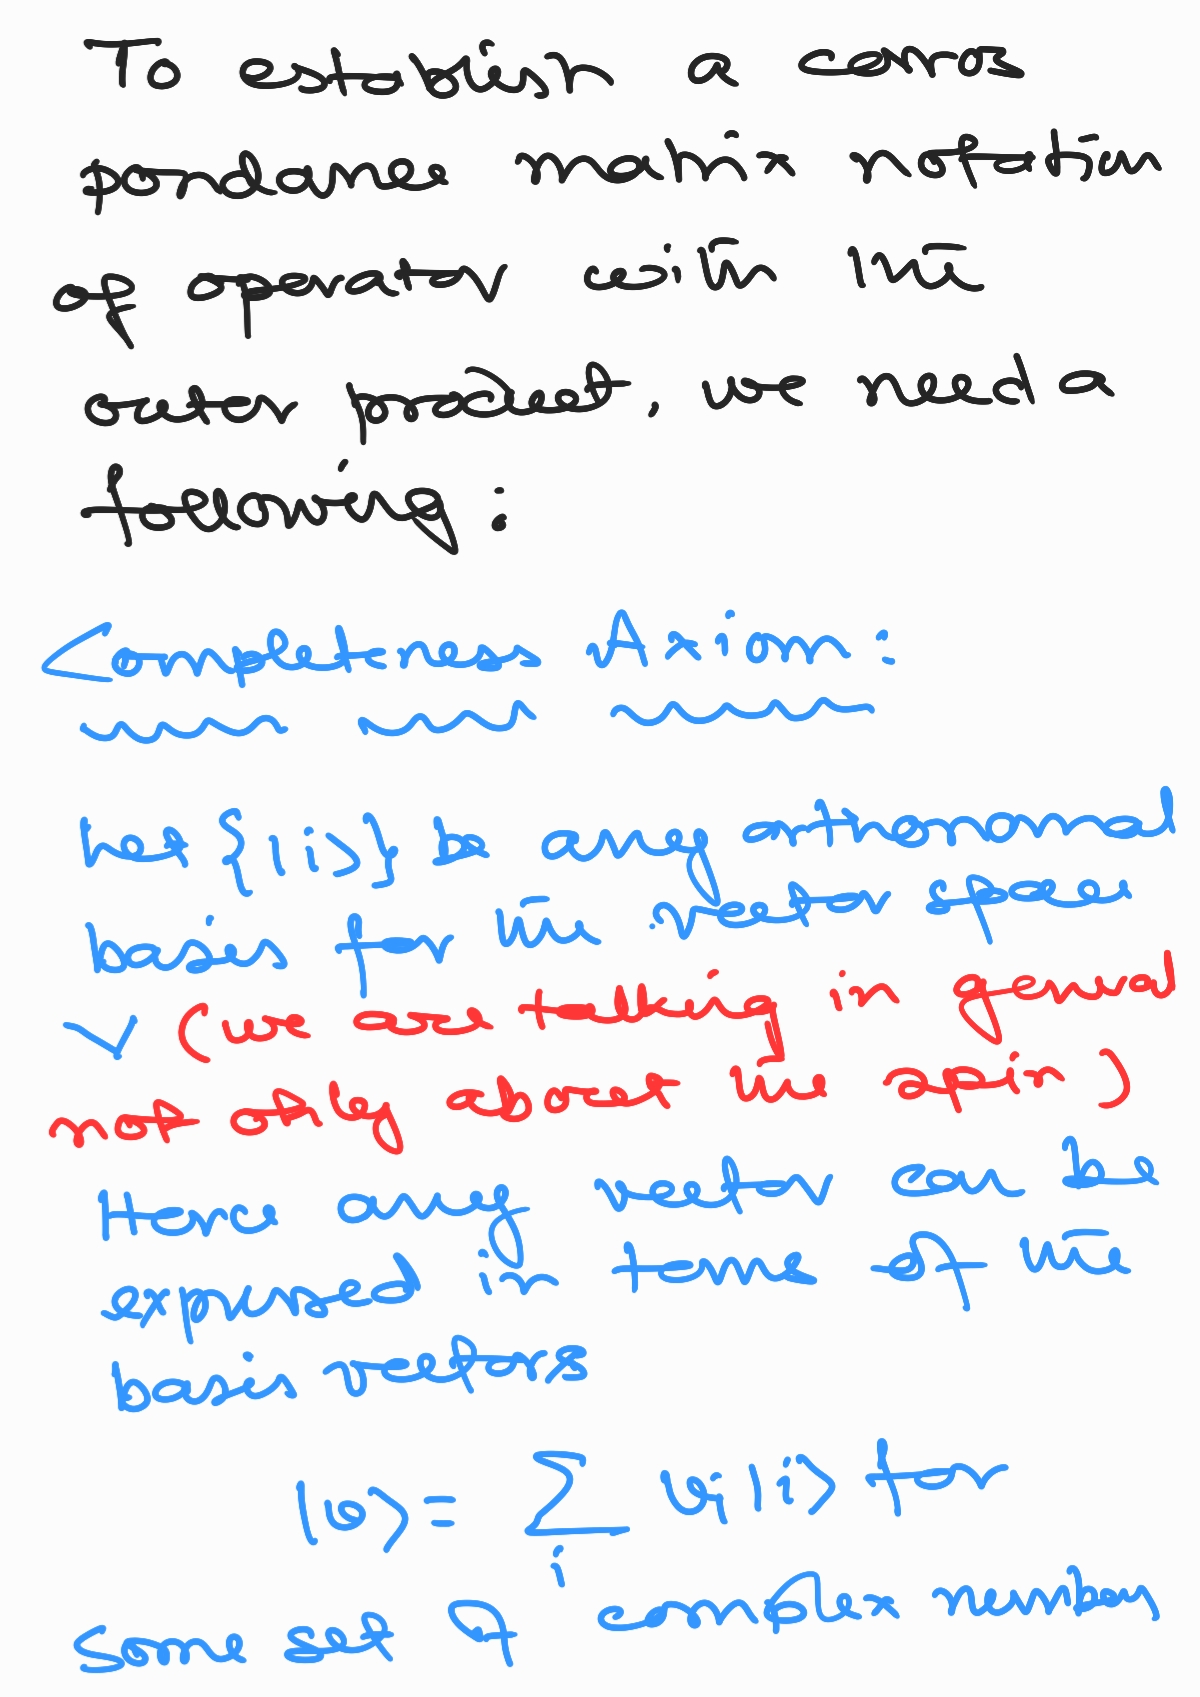 To establish a corres
pondance matrix notation
of operator with the
outer product, we need a
following :
Completeness Axiom :
Let {|i>} be any orthonormal
basis for the vector space
V (we are talking in general
not only about the spin)
Hence any vector can be
expressed in terms of the
basis vectors
|v> = ∑ vᵢ |i> for
i
some set of complex numbers